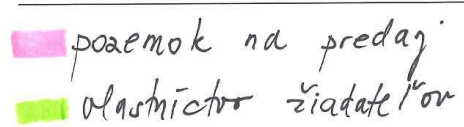 pozemok na predaj
vlastníctvo žiadateľov